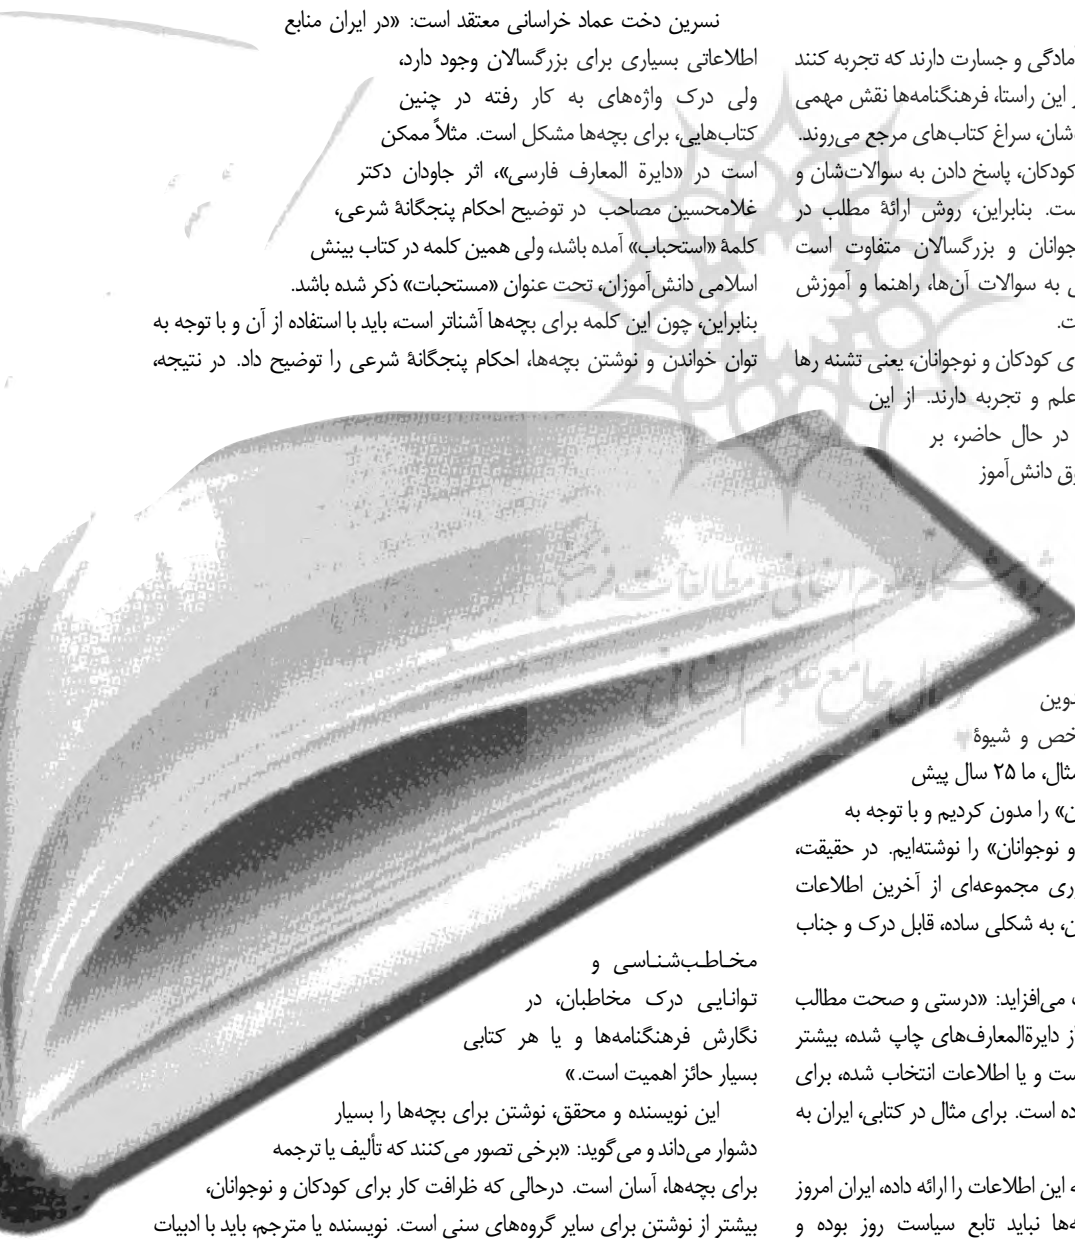 آمادگی و جسارت دارند که تجربه کنند
این راستا، فرهنگنامه‌ها نقش مهمی
سراغ کتاب‌های مرجع می‌روند.
کودکان، پاسخ دادن به سوالات‌شان و
بنابراین، روش ارائهٔ مطلب در
و بزرگسالان متفاوت است
به سوالات آن‌ها، راهنما و آموزش
کودکان و نوجوانان، یعنی تشنه رها
علم و تجربه دارند. از این
در حال حاضر، بر
دانش‌آموز
و شیوهٔ
ما ۲۵ سال پیش
را مدون کردیم و با توجه به
و نوجوانان» را نوشته‌ایم. در حقیقت،
مجموعه‌ای از آخرین اطلاعات
به شکلی ساده، قابل درک و جناب
می‌افزاید: «درستی و صحت مطالب
از دایرةالمعارف‌های چاپ شده، بیشتر
و یا اطلاعات انتخاب شده، برای
است. برای مثال در کتابی، ایران به
این اطلاعات را ارائه داده، ایران امروز
نباید تابع سیاست روز بوده و
نسرین دخت عماد خراسانی معتقد است: «در ایران منابع
اطلاعاتی بسیاری برای بزرگسالان وجود دارد،
ولی درک واژه‌های به کار رفته در چنین
کتاب‌هایی، برای بچه‌ها مشکل است. مثلاً ممکن
است در «دایرة المعارف فارسی»، اثر جاودان دکتر
غلامحسین مصاحب در توضیح احکام پنجگانهٔ شرعی،
کلمهٔ «استحباب» آمده باشد، ولی همین کلمه در کتاب بینش
اسلامی دانش‌آموزان، تحت عنوان «مستحبات» ذکر شده باشد.
بنابراین، چون این کلمه برای بچه‌ها آشناتر است، باید با استفاده از آن و با توجه به
توان خواندن و نوشتن بچه‌ها، احکام پنجگانهٔ شرعی را توضیح داد. در نتیجه،
مخاطب‌شناسی و
توانایی درک مخاطبان، در
نگارش فرهنگنامه‌ها و یا هر کتابی
بسیار حائز اهمیت است.»
این نویسنده و محقق، نوشتن برای بچه‌ها را بسیار
دشوار می‌داند و می‌گوید: «برخی تصور می‌کنند که تألیف یا ترجمه
برای بچه‌ها، آسان است. درحالی که ظرافت کار برای کودکان و نوجوانان،
بیشتر از نوشتن برای سایر گروه‌های سنی است. نویسنده یا مترجم، باید با ادبیات
پژوهشگاه علوم انسانی و مطالعات فرهنگی
جامع علوم انسانی